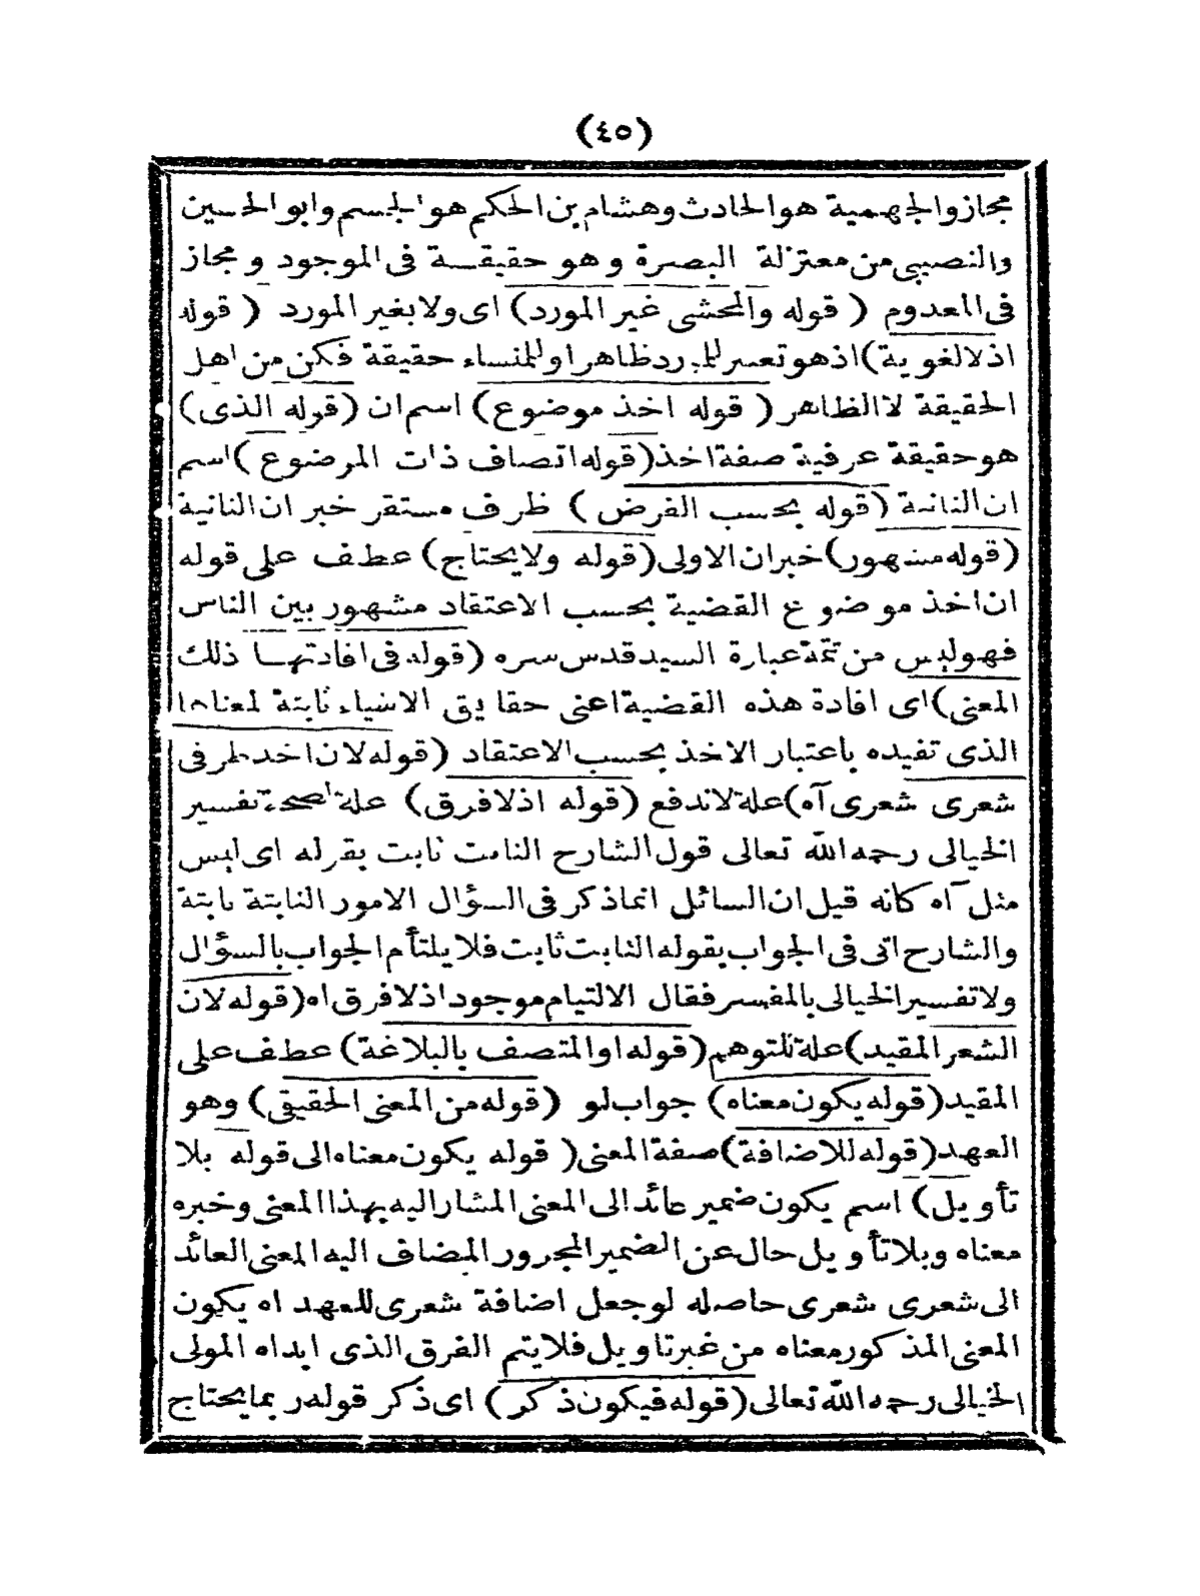 (٤٥)
مجاز والجهمية هو الحادث وهشام بن الحكم هو الجسم وابو الحسين
والنصيبى من معتزلة البصرة وهو حقيقة فى الموجود ومجاز
فى المعدوم ( قوله والمحشى غير المورد) اى ولا بغير المورد ( قوله
اذ لا لغوية) اذ هو تعسر للمورد ظاهرا وللمنساء حقيقة فكن من اهل
الحقيقة لا الظاهر ( قوله اخذ موضوع) اسم ان (قوله الذى)
هو حقيقة عرفية صفة اخذ (قوله اتصاف ذات الموضوع) اسم
ان الثانية (قوله بحسب الفرض) ظرف مستقر خبر ان الثانية
(قوله مشهور) خبر ان الاولى (قوله ولا يحتاج) عطف على قوله
ان اخذ موضوع القضية بحسب الاعتقاد مشهور بين الناس
فهو ليس من تتمة عبارة السيد قدس سره (قوله فى افادتها ذلك
المعنى) اى افادة هذه القضية اعنى حقايق الاشياء ثابتة لمعناها
الذى تفيده باعتبار الاخذ بحسب الاعتقاد (قوله لان اخذ طرفى
شعرى شعرى آه) علة لاندفع (قوله اذ لا فرق) علة لصحة تفسير
الخيالى رحمه الله تعالى قول الشارح الثابت ثابت بقوله اى ليس
مثل آه كانه قيل ان السائل انما ذكر فى السؤال الامور الثابتة ثابتة
والشارح اتى فى الجواب بقوله الثابت ثابت فلا يلتأم الجواب بالسؤال
ولا تفسير الخيالى بالمفسر فقال الالتيام موجود اذ لا فرق اه (قوله لان
الشعر المقيد) علة للتوهم (قوله او المتصف بالبلاغة) عطف على
المقيد (قوله يكون معناه) جواب لو (قوله من المعنى الحقيقى) وهو
العهد (قوله للاضافة) صفة المعنى ( قوله يكون معناه الى قوله بلا
تأويل) اسم يكون ضمير عائد الى المعنى المشار اليه بهذا المعنى وخبره
معناه وبلا تأويل حال عن الضمير المجرور المضاف اليه المعنى العائد
الى شعرى شعرى حاصله لو جعل اضافة شعرى للعهد اه يكون
المعنى المذكور معناه من غير تاويل فلا يتم الفرق الذى ابداه المولى
الخيالى رحمه الله تعالى (قوله فيكون ذكر) اى ذكر قوله ربما يحتاج